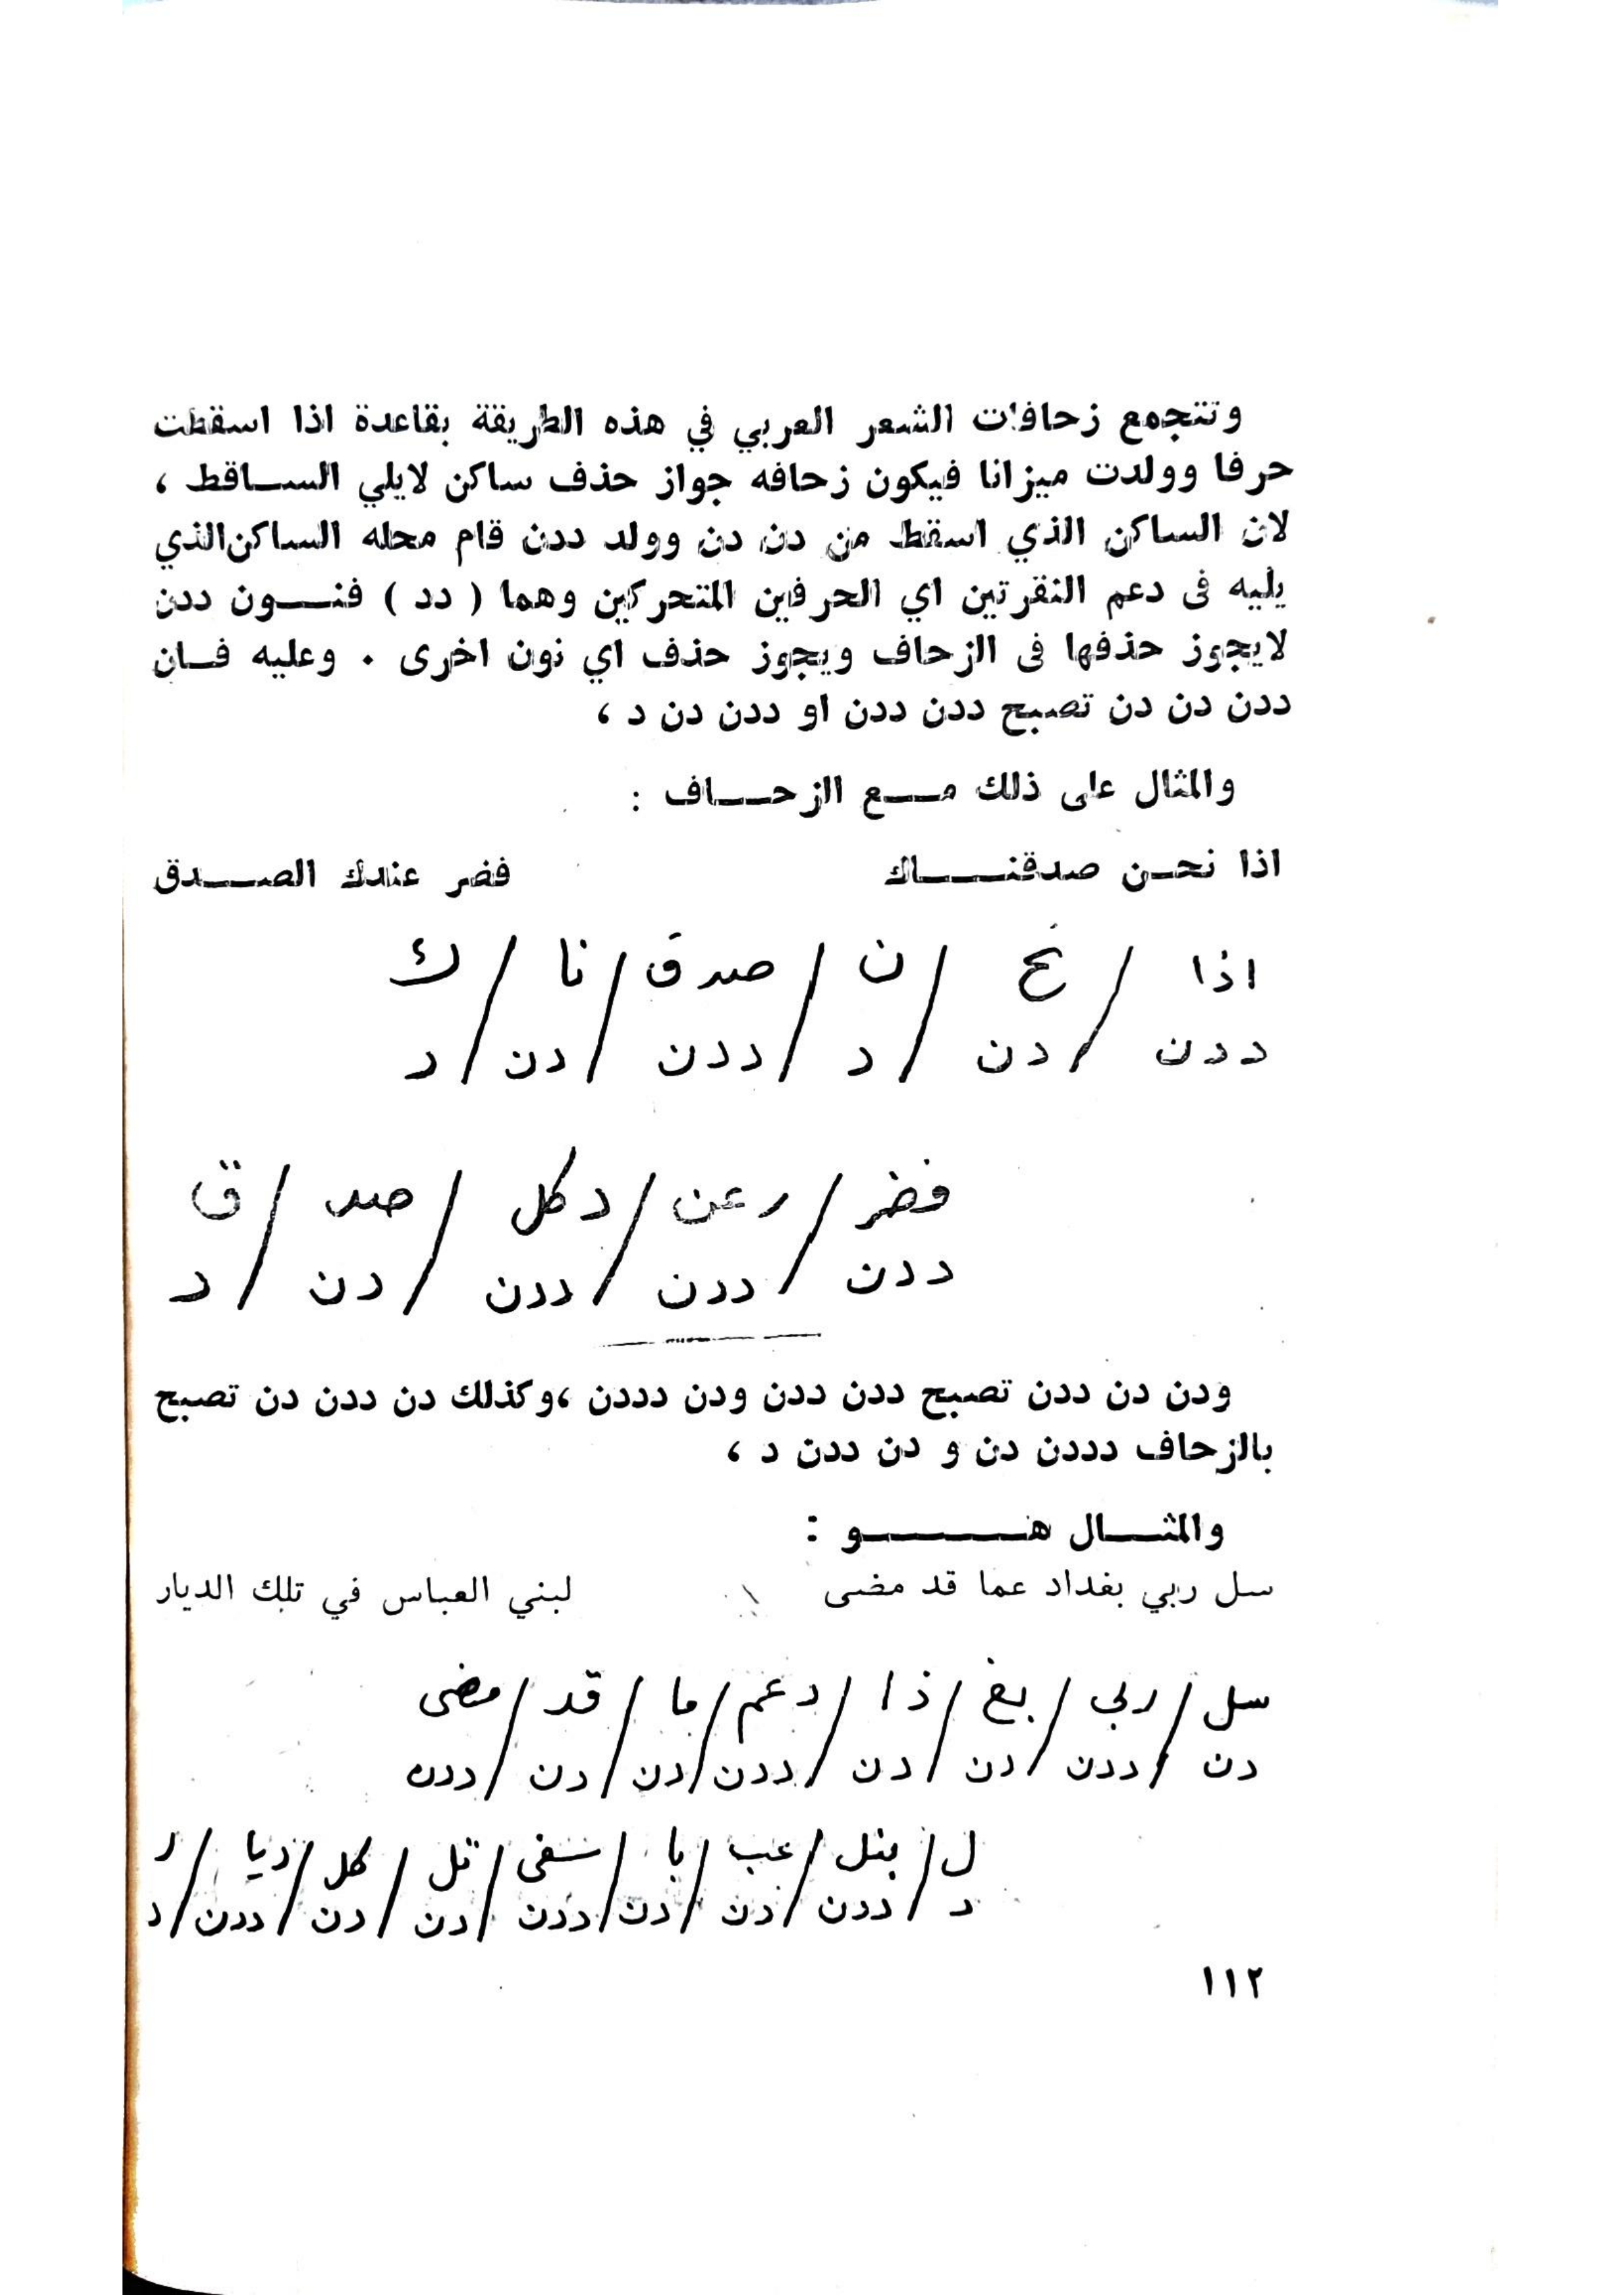 وتتجمع زحافات الشعر العربي في هذه الطريقة بقاعدة اذا اسقطت
حرفا وولدت ميزانا فيكون زحافه جواز حذف ساكن لايلي الساقط ،
لان الساكن الذي اسقط من دن دن وولد ددن قام محله الساكن الذي
يليه فى دعم النقرتين اي الحرفين المتحركين وهما ( دد ) فنون ددن
لايجوز حذفها فى الزحاف ويجوز حذف اي نون اخرى . وعليه فان
ددن دن دن تصبح ددن ددن او ددن دن د ،
والمثال على ذلك مع الزحاف :
اذا نحن صدقناك فضر عندك الصدق
اذا / نح / ن / صدق / نا / ك
ددن / دن / د / ددن / دن / د
فضر / رعن / دكل / صد / ق
ددن / ددن / ددن / دن / د
ودن دن ددن تصبح ددن ددن ودن دددن ،وكذلك دن ددن دن تصبح
بالزحاف دددن دن و دن ددن د ،
والمثال هو :
سل ربي بغداد عما قد مضى لبني العباس في تلك الديار
سل / ربي / بغ / ذا / دعم / ما / قد / مضى
دن / ددن / دن / دن / ددن / دن / دن / ددن
ل / بنل / عب / با / سفى / تل / كل / ديا / ر
د / ددن / دن / دن / ددن / دن / دن / ددن / د
١١٢